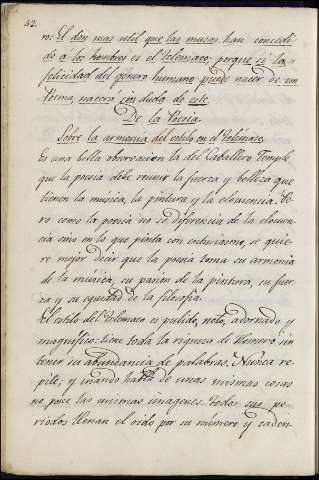 42.
ro: El don mas util que las musas han concedi-
do a los hombres es el Telemaco; porque si la
felicidad del género humano puede nacer de un
Poema, nacerá sin duda de este.
De la Poesia.
Sobre la armonia del estilo en el Telemaco.
Es una bella observacion la del Caballero Temple
que la poesia debe reunir la fuerza y belleza que
tienen la musica, la pintura y la elocuencia. Pe-
ro como la poesia no se diferencia de la elocuen-
cia sino en lo que pinta con entusiasmo, se quie-
re mejor decir que la poesia toma su armonia
de la música, su pasion de la pintura, su fuer-
za y su equidad de la filosofia.
El estilo del Telemaco es pulido, neto, adornado y
magnifico: tiene toda la riqueza de Homero sin
tener su abundancia de palabras. Nunca re-
pite; y cuando habla de unas mismas cosas
no pone las mismas imagenes. Todos sus pe-
riodos llenan el oido por su número y caden-